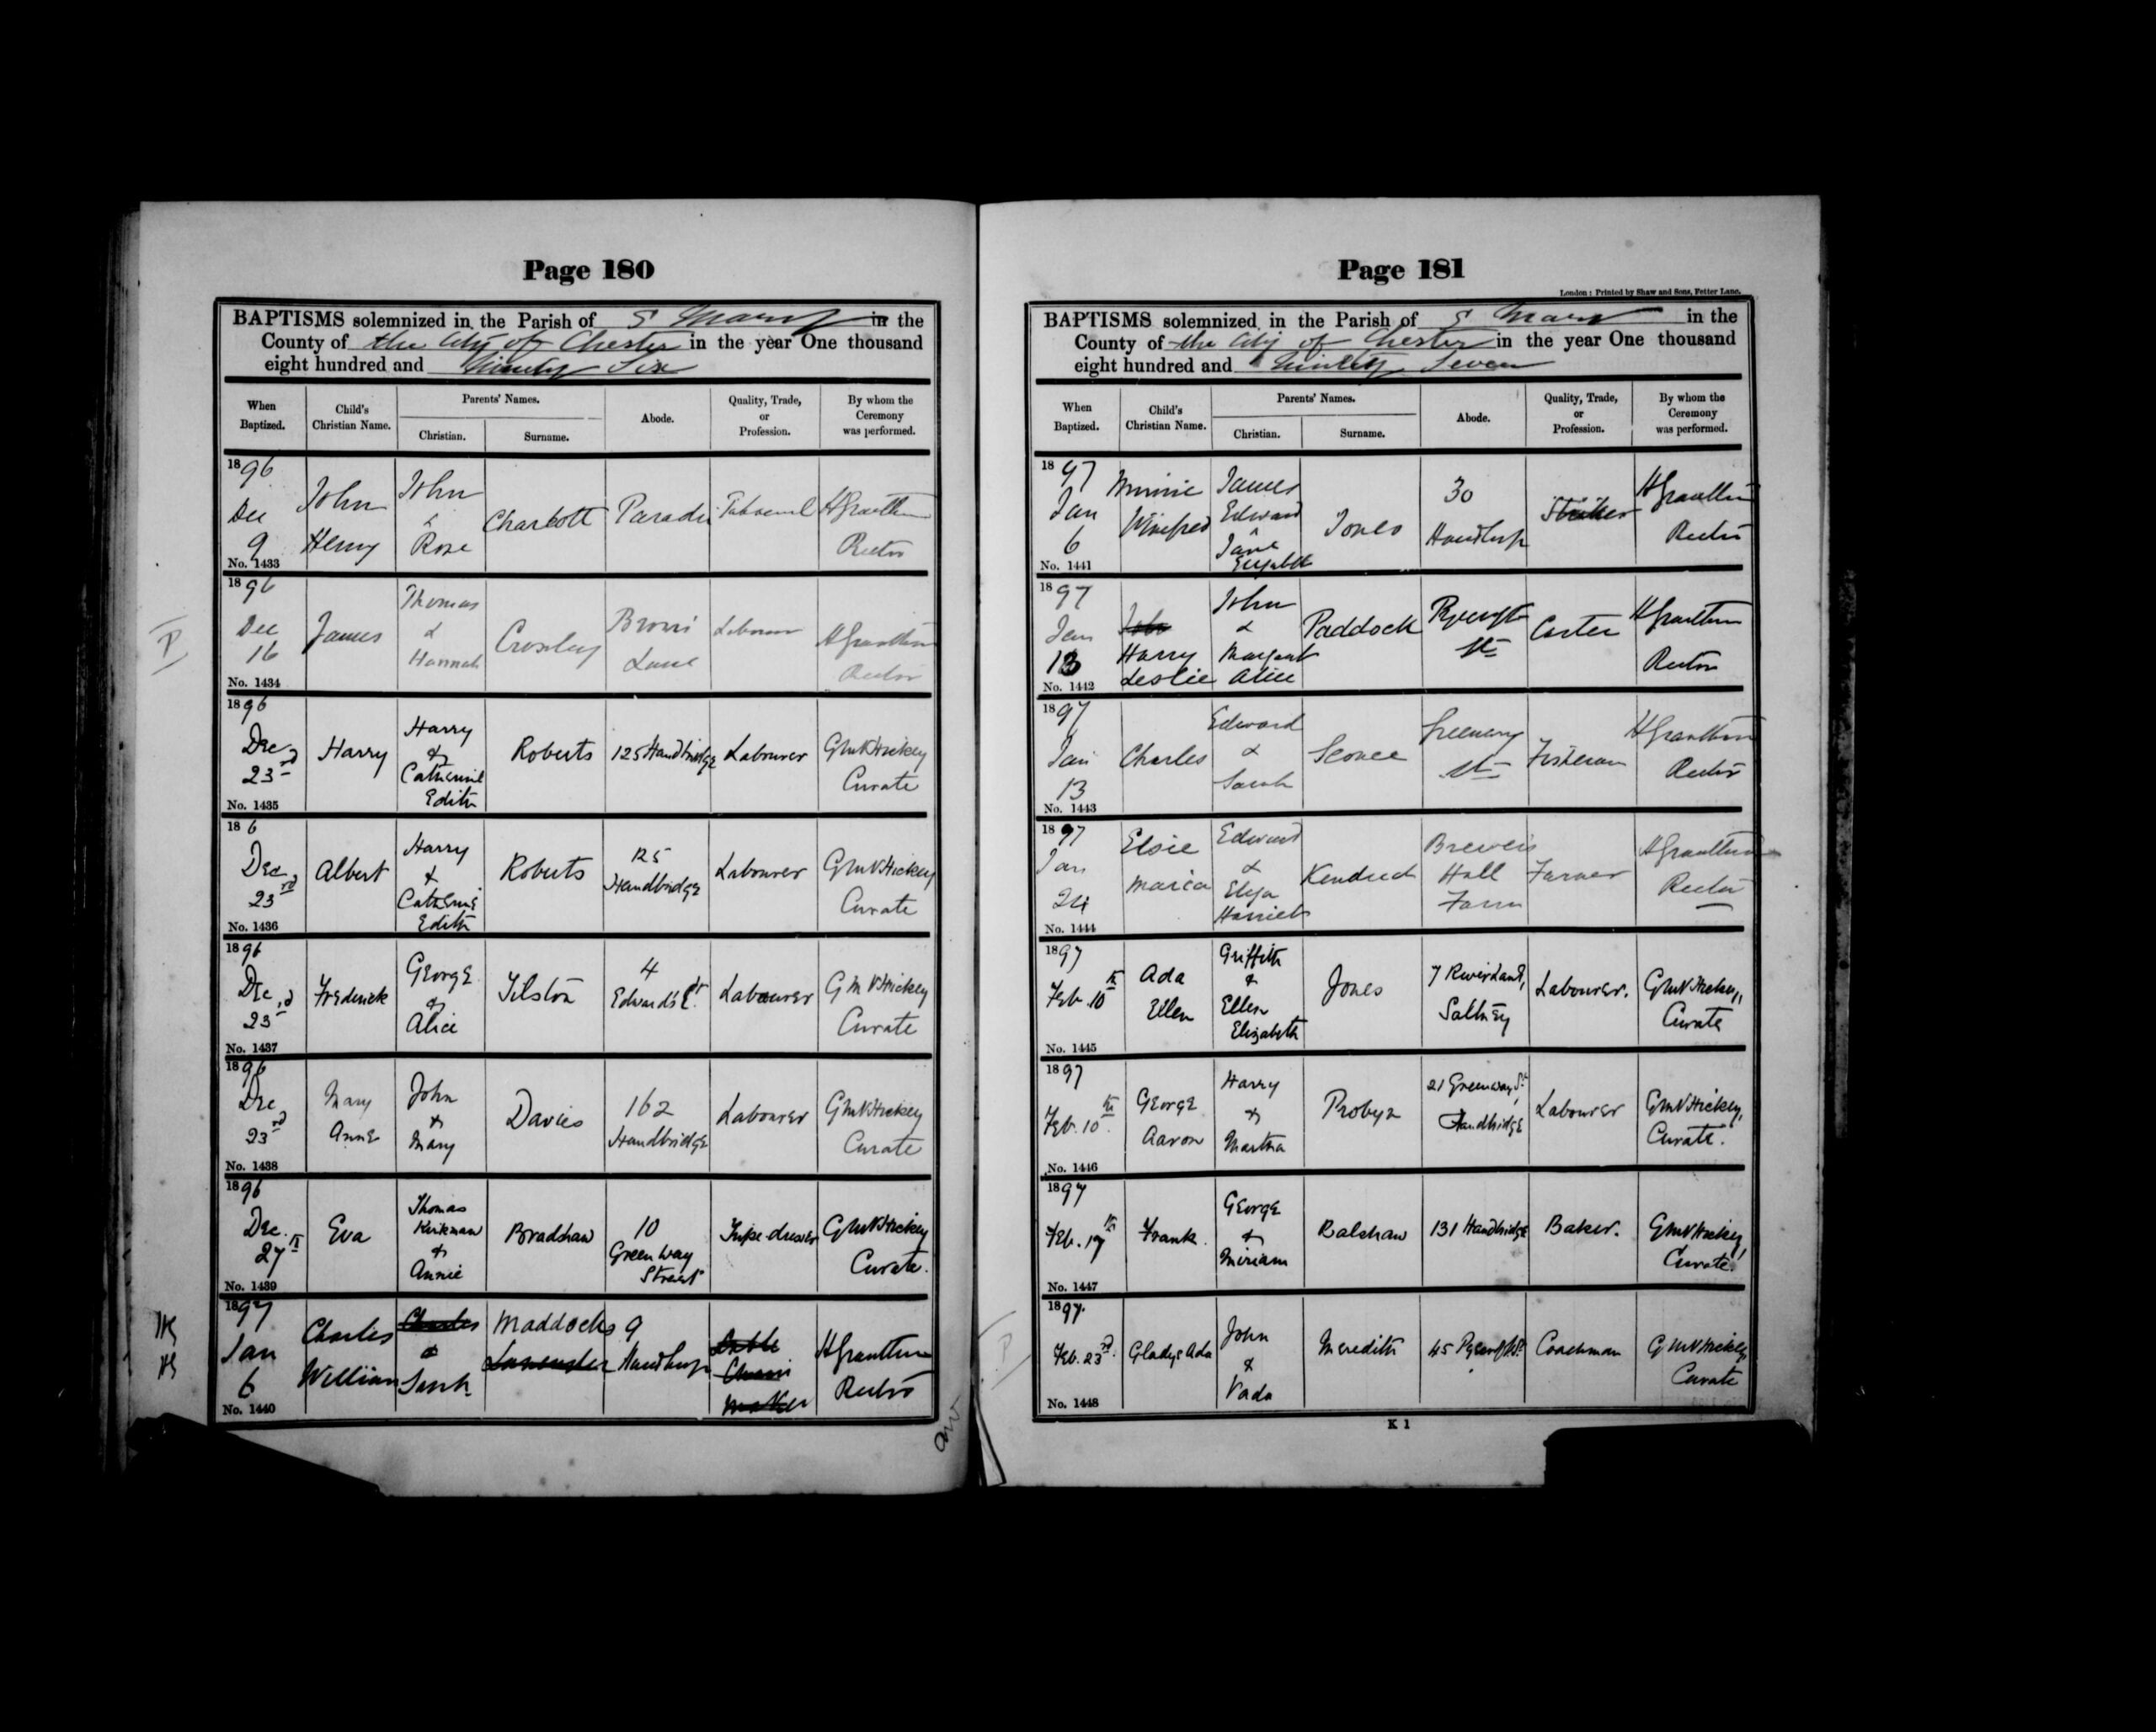 Page 180
BAPTISMS solemnized in the Parish of S Mary in the
County of the City of Chester in the year One thousand
eight hundred and Ninety Six
When Baptized. Child's Christian Name. Parents' Names. Christian. Surname. Abode. Quality, Trade, or Profession. By whom the Ceremony was performed.
1896
Dec
9
No. 1433
John
Henry
John
&
Rose
Charlotte
H Grantham
Rector
1896
Dec
16
No. 1434
James
Thomas
&
Hannah
Crossley
Lane
Labourer
H Grantham
Rector
1896
Dec
23rd
No. 1435
Harry
Harry
&
Catherine
Edith
Roberts
125 Handbridge
Labourer
G McV Hickey
Curate
18 6
Dec
23rd
No. 1436
Albert
Harry
&
Catherine
Edith
Roberts
125
Handbridge
Labourer
G McV Hickey
Curate
1896
Dec
23rd
No. 1437
Frederick
George
&
Alice
Tilston
4
Labourer
G McV Hickey
Curate
1896
Dec
23rd
No. 1438
Mary
Anne
John
&
Mary
Davies
162
Handbridge
Labourer
G McV Hickey
Curate
1896
Dec.
27th
No. 1439
Eva
Thomas
Kirkman
&
Annie
Bradshaw
10
Greenway
Street
Tripe-dresser
G McV Hickey
Curate.
1897
Jan
6
No. 1440
Charles
William
Charles
&
Sarah
Maddocks
Lancaster
9
Handbridge
Maker
H Grantham
Rector
Page 181
London: Printed by Shaw and Sons, Fetter Lane.
BAPTISMS solemnized in the Parish of S Mary in the
County of the City of Chester in the year One thousand
eight hundred and Ninety Seven
When Baptized. Child's Christian Name. Parents' Names. Christian. Surname. Abode. Quality, Trade, or Profession. By whom the Ceremony was performed.
1897
Jan
6
No. 1441
Minnie
Winifred
James
Edward
Jane
Elizabeth
Jones
30
Handbridge
Striker
H Grantham
Rector
1897
Jan
13
No. 1442
John
Harry
Leslie
John
&
Margaret
Alice
Paddock
St
Carter
H Grantham
Rector
1897
Jan
13
No. 1443
Charles
Edward
&
Sarah
Greenway
St
Fisherman
H Grantham
Rector
1897
Jan
24
No. 1444
Elsie
Maria
Edward
&
Eliza
Harriet
Brewers
Hall
Farm
Farmer
H Grantham
Rector
1897
Feb. 10th
No. 1445
Ada
Ellen
Griffith
&
Ellen
Elizabeth
Jones
7 River Lane,
Saltney
Labourer.
G McV Hickey,
Curate
1897
Feb. 10th.
No. 1446
George
Aaron
Harry
&
Martha
Probyn
21 Greenway St,
Handbridge
Labourer
G McV Hickey,
Curate.
1897
Feb. 17th
No. 1447
Frank.
George
&
Miriam
Balshaw
131 Handbridge
Baker.
G McV Hickey,
Curate.
1897.
Feb. 23rd.
No. 1448
Gladys Ada
John
&
Vada
Meredith
Coachman
G McV Hickey,
Curate
K 1